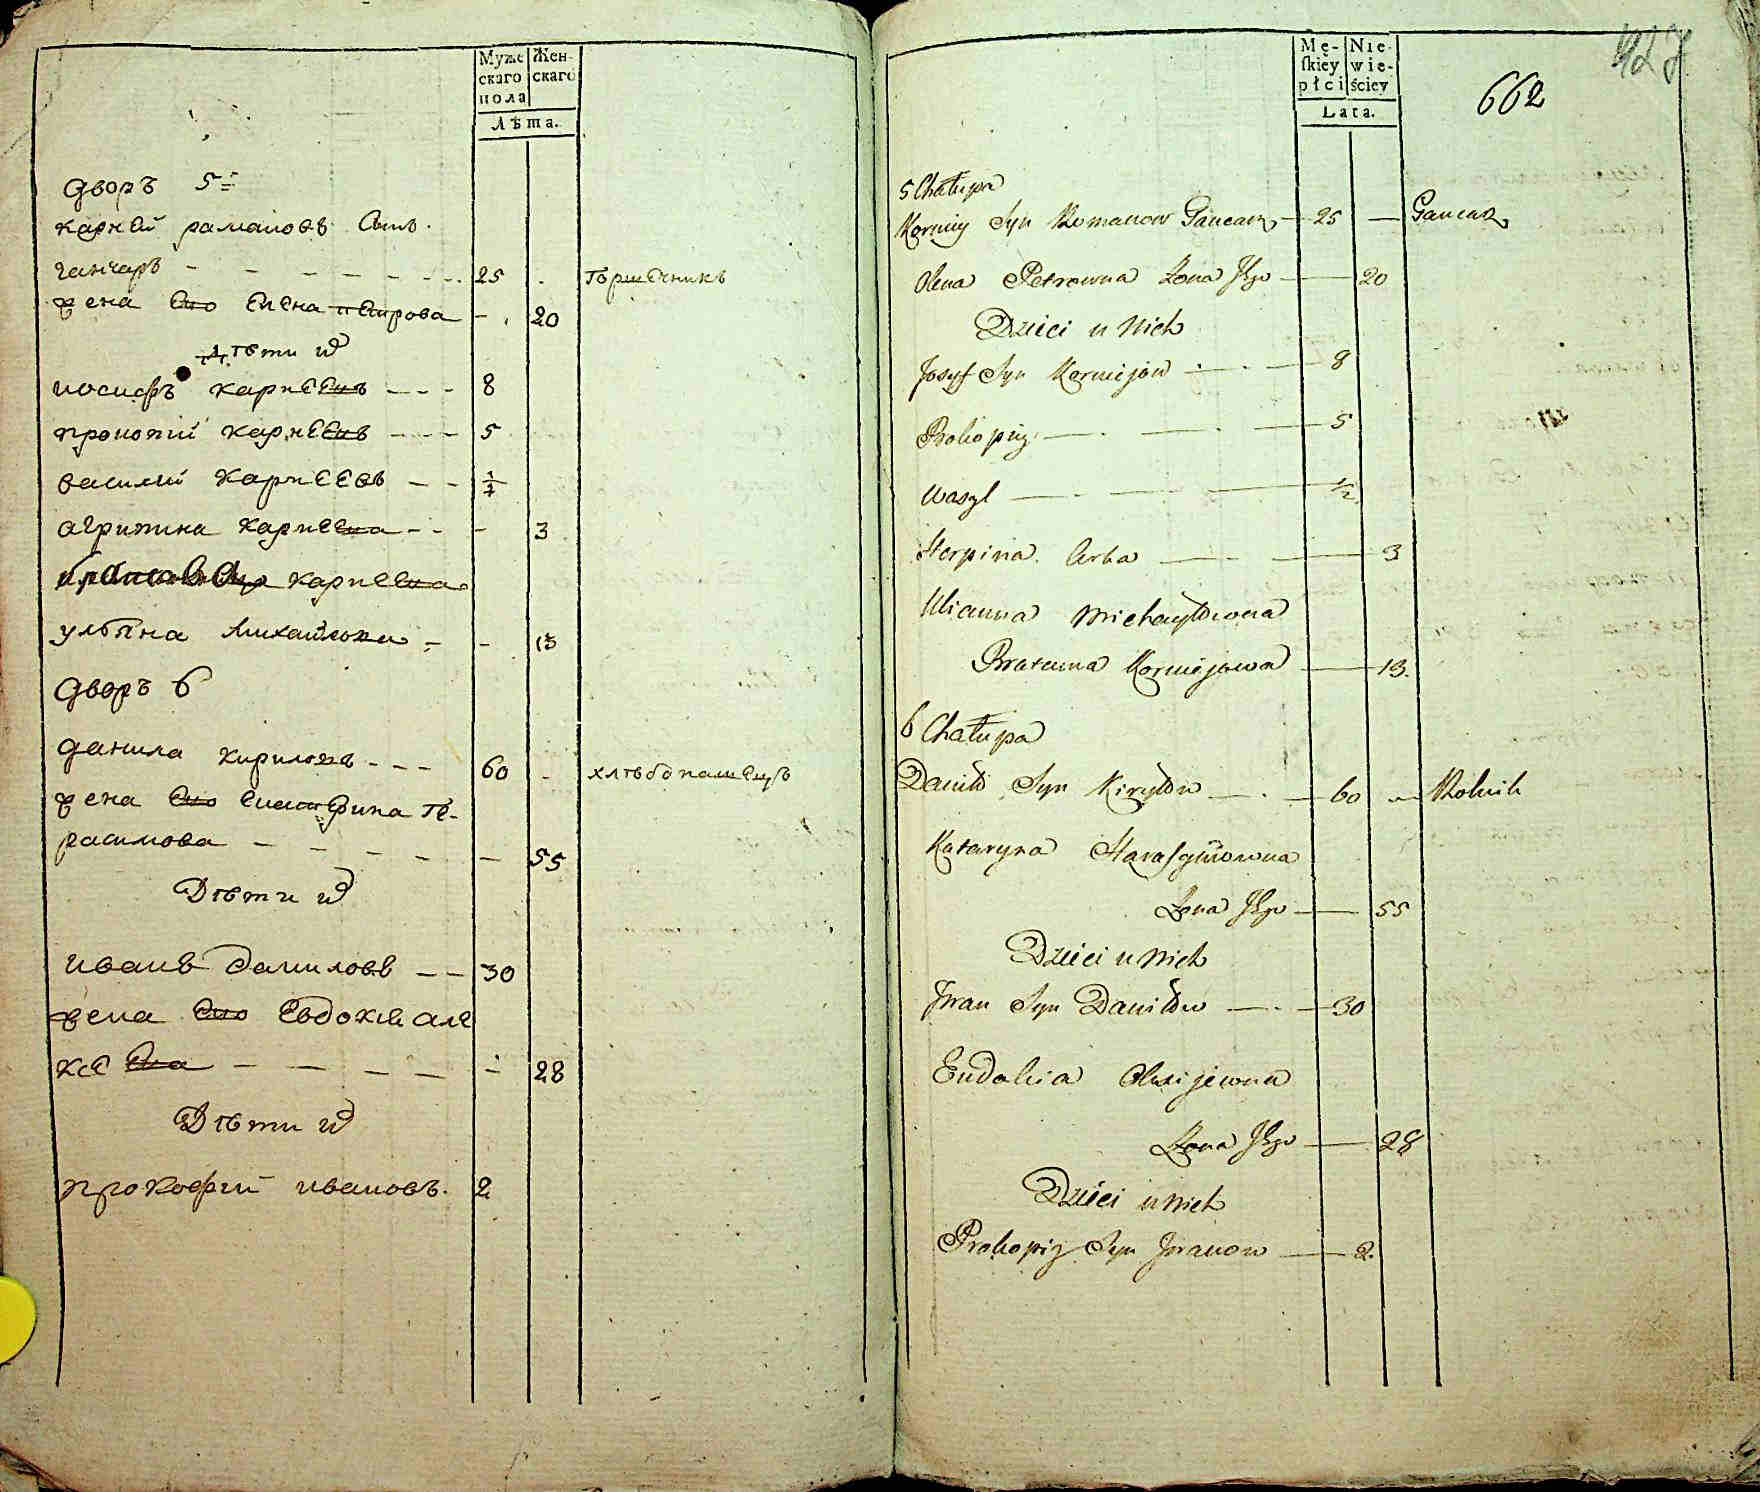 Мужескаго пола
Женскаго
Лѣта.
дворъ 5й
карней рамановъ сынъ
ганчаръ - - - - - - - 25 - горшечникъ
жена ево елена петрова - 20
дѣти их
иосифъ карнеевъ - - - 8
прокопий карнеевъ - - - 5
василий карнеевъ - - ½
агрипина карнеева - - - 3
карнеева
ульяна михайлова - - 13
дворъ 6
данила кириловъ - - - 60 - хлѣбопашецъ
жена ево екатерина ге-
расимова - - - - - 55
Дѣти их
иванъ даниловъ - - 30
жена ево евдокия але
ксеева - - - - - - 28
Дѣти их
прокофий ивановъ. 2
Mę-skiéy płci
Nie-wie-ściey
Lata.
662
427
5 Chałupa
Korniy Syn Romanow Gancarz - 25 - Gancarz
Olena Petrowna Żona Jego - 20
Dzieci u Nich
Josyf Syn Kornijow - - - 8
Prokopiy - - - 5
Wasyl - - - ½
Harpina Curka - - - 3
Ulianna Michayłowna
Bratanna Kornijowa - 13.
6 Chałupa
Daniło Syn Kiryłow - - 60 - Rolnik
Kataryna Harasymowna
Żona Jego - 55
Dzieci u Nich
Jwan Syn Daniłow - - 30
Eudokia Olexijewna
Żona Jego - 28
Dzieci u Nich
Prokopiy Syn Jwanow - 2.